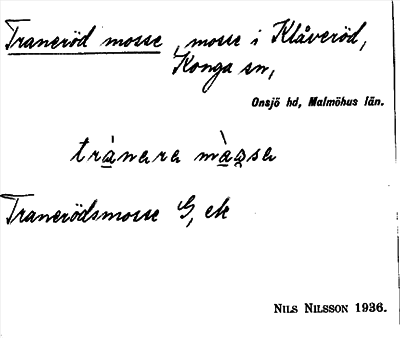 Traneröd mosse, mosse i Klåveröd,
Konga sn,
Onsjö hd, Malmöhus län.
trànara màosa
Tranerödsmosse G, ek
NILS NILSSON 1936.